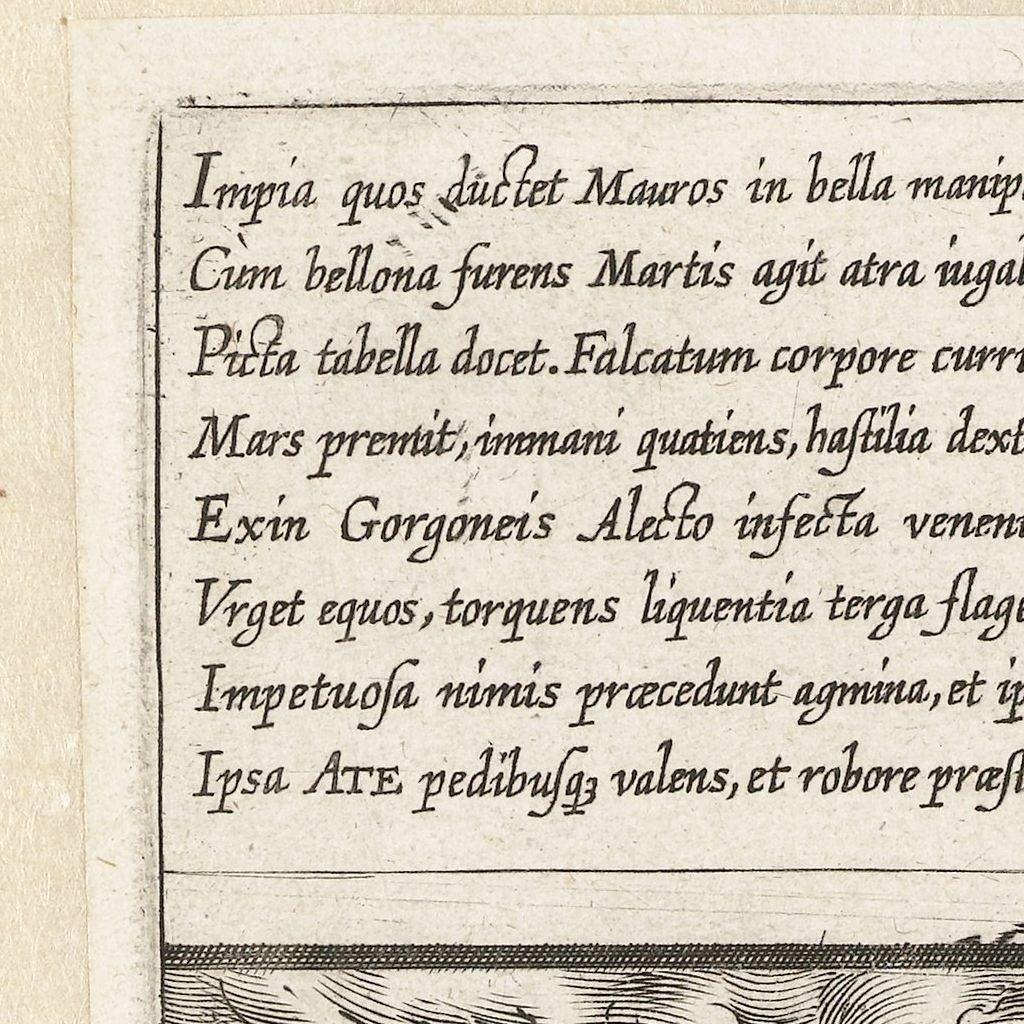 Impia quos ductet Mauros in bella manip
Cùm bellona furens Martis agit atra iugal
Picta tabella docet. Falcatum corpore curr
Mars premit, immani quatiens, haſtilia dext
Exin Gorgoneis Alecto infecta venen
Vrget equos, torquens liquentia terga flag
Impetuoſa nimis præcedunt agmina, et ip
Ipsa ATE pedibuſqꝫ valens, et robore præſt